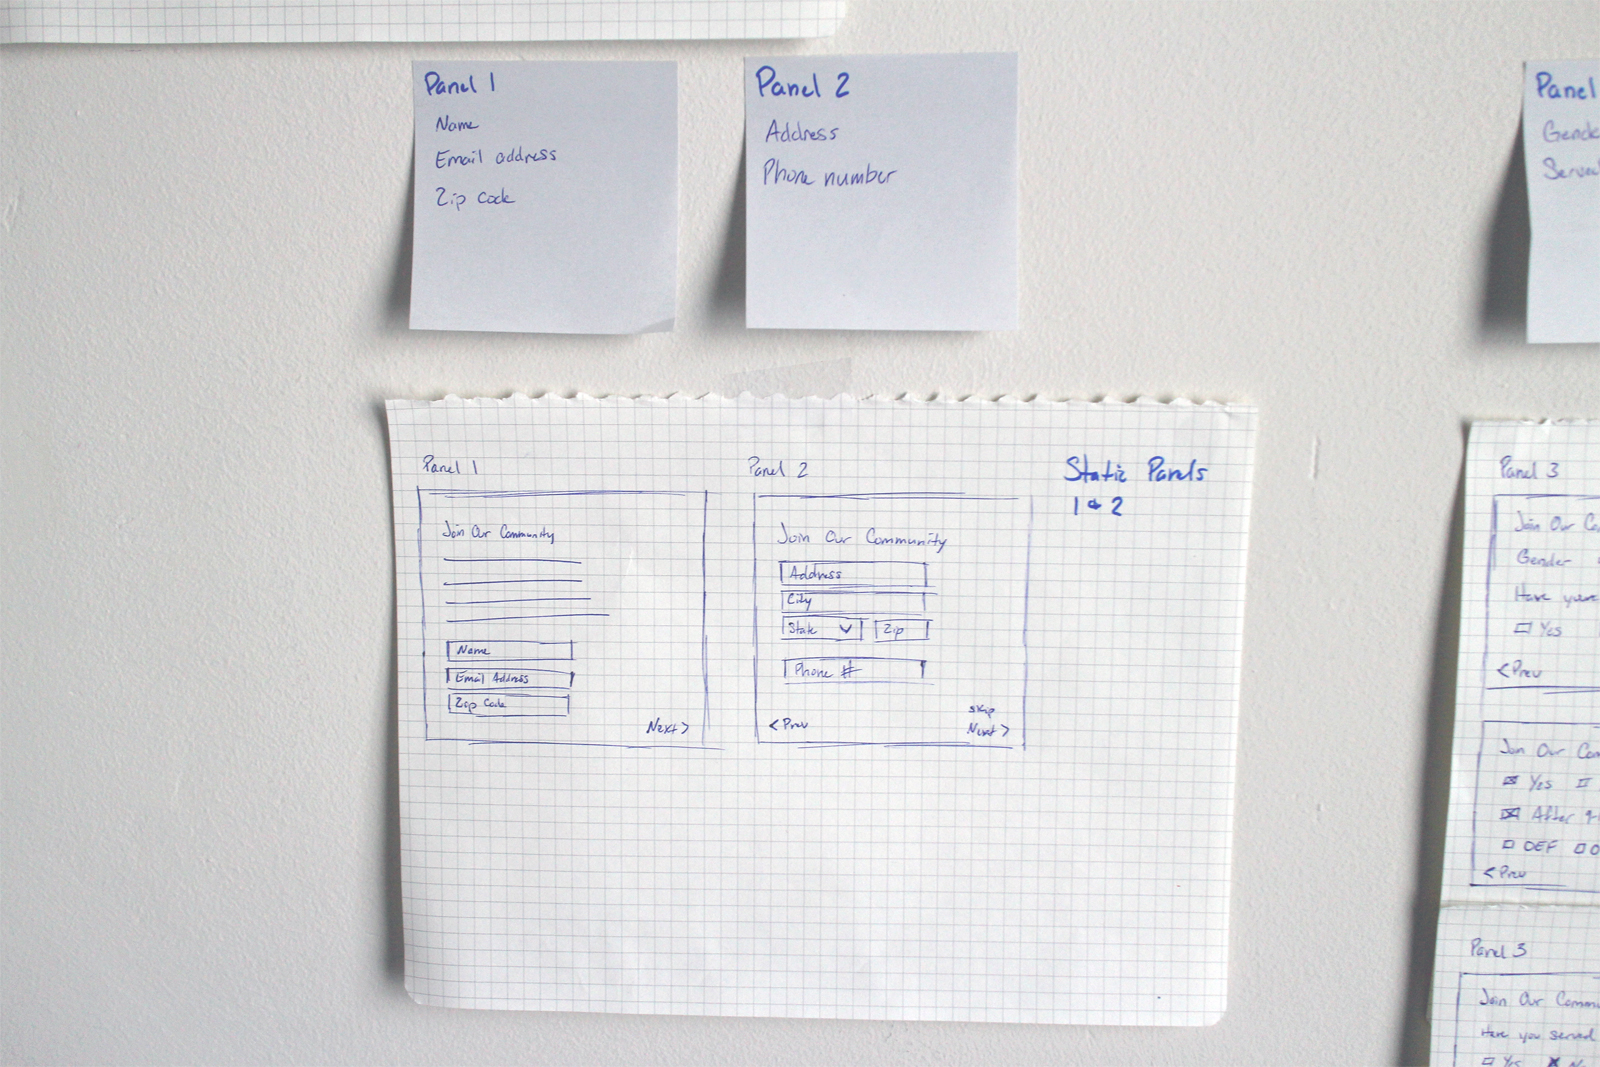 Panel 1
Name
Email address
Zip code
Panel 2
Address
Phone number
Panel
Panel 1
Join Our Community
Name
Email Address
Zip Code
Next >
Panel 2
Join Our Community
Address
City
State
Zip
Phone #
< Prev
skip
Next >
Static Panels
1 & 2
Panel 3
Join Our
Gender
Have
Yes
< Prev
Join Our
Yes
After
DEF
< Prev
Panel 3
Join Our
Have you served
Yes